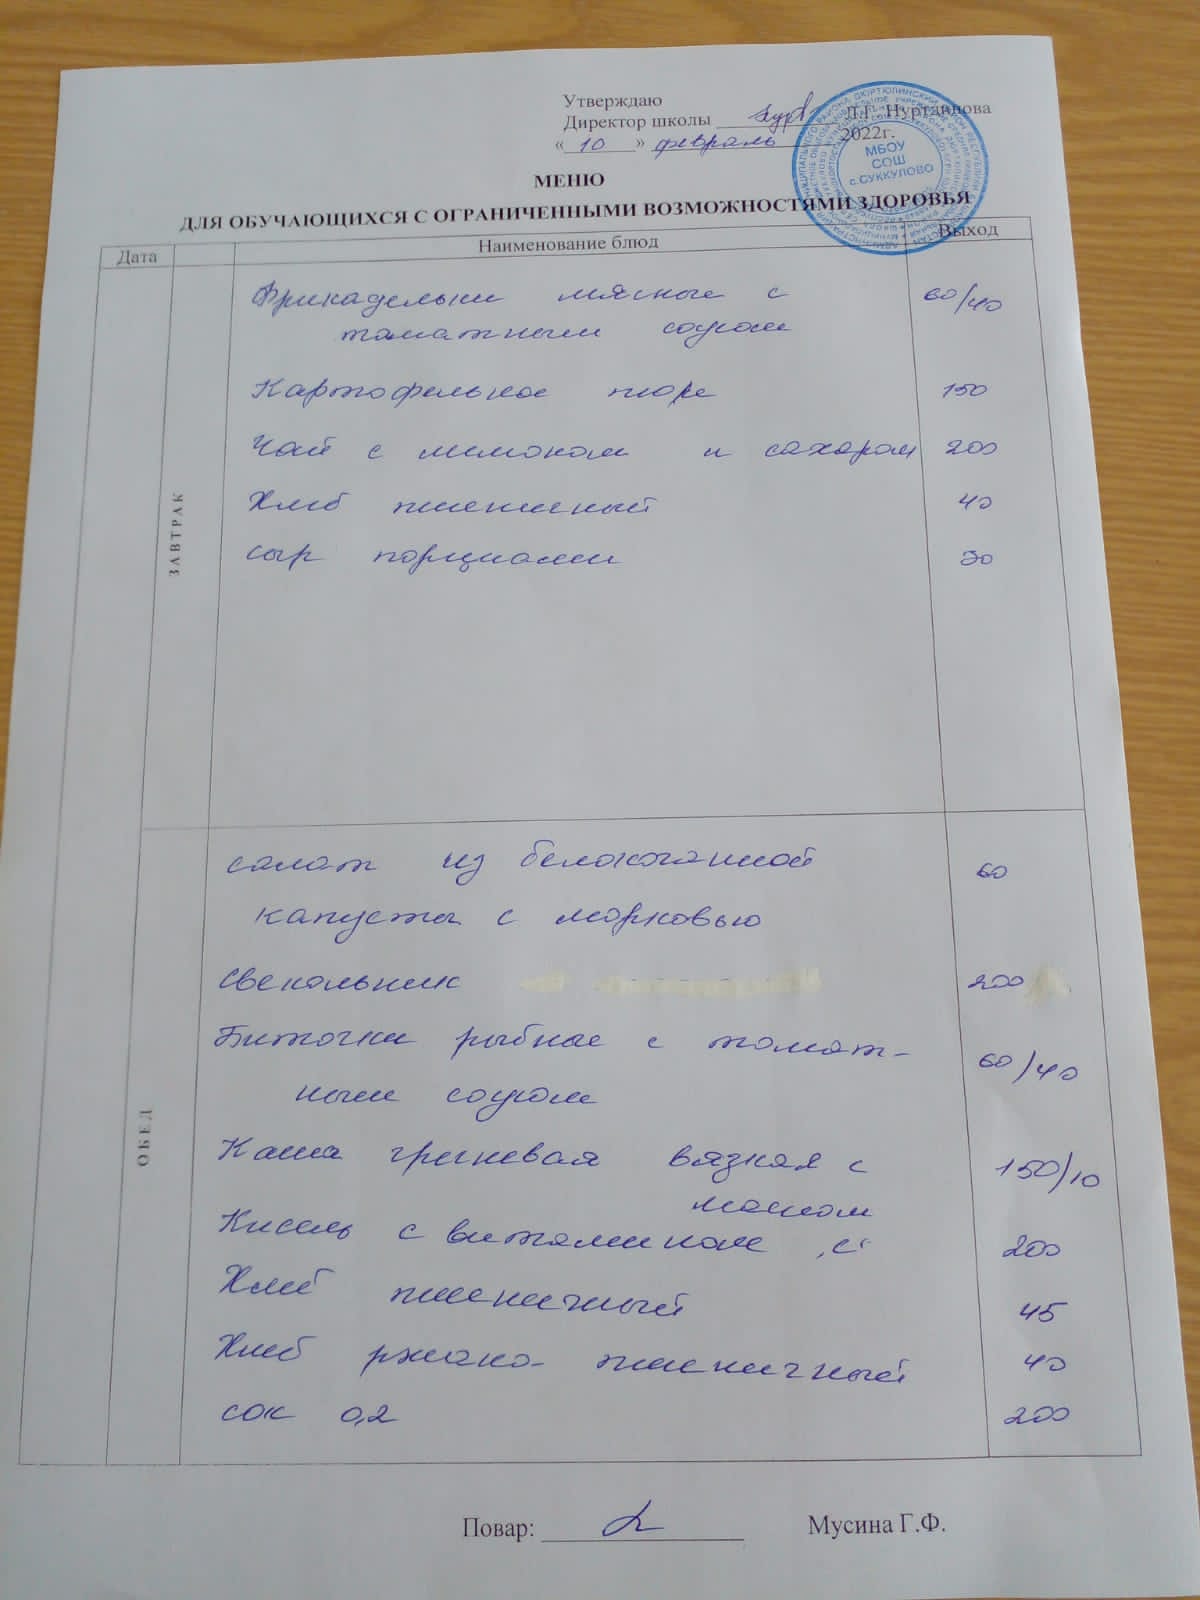 Утверждаю
Директор школы Л.Г. Нуртдинова
«10» февраль 2022г.
МБОУ
СОШ
с.СУККУЛОВО
МЕНЮ
ДЛЯ ОБУЧАЮЩИХСЯ С ОГРАНИЧЕННЫМИ ВОЗМОЖНОСТЯМИ ЗДОРОВЬЯ
Дата Наименование блюд Выход
ЗАВТРАК
Фрикадельки мясные с 60/40
томатным соусом
Картофельное пюре 150
Чай с лимоном и сахаром 200
Хлеб пшеничный 40
сыр порциями 30
ОБЕД
салат из белокочанной 60
капусты с морковью
Свекольник 200
Биточки рыбные с томат- 60/40
ным соусом
Каша гречневая вязкая с 150/10
маслом
Кисель с витамином „С“ 200
Хлеб пшеничный 45
Хлеб ржано-пшеничный 40
сок 0,2 200
Повар: Мусина Г.Ф.